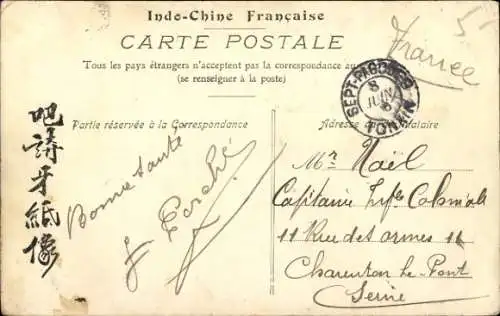 Indo-Chine Française
CARTE POSTALE
Tous les pays étrangers n'acceptent pas la correspondance au
(se renseigner à la poste)
France
5
SEPT-PAGODES
8
JUIN
ANNAM
Partie réservée à la Correspondance
Adresse du destinataire
吧
詩
牙
紙
像
Bonne santé
Mr Naël
Capitaine Infie Coloniale
11 Rue des ormes 11
Charenton le Pont
Seine